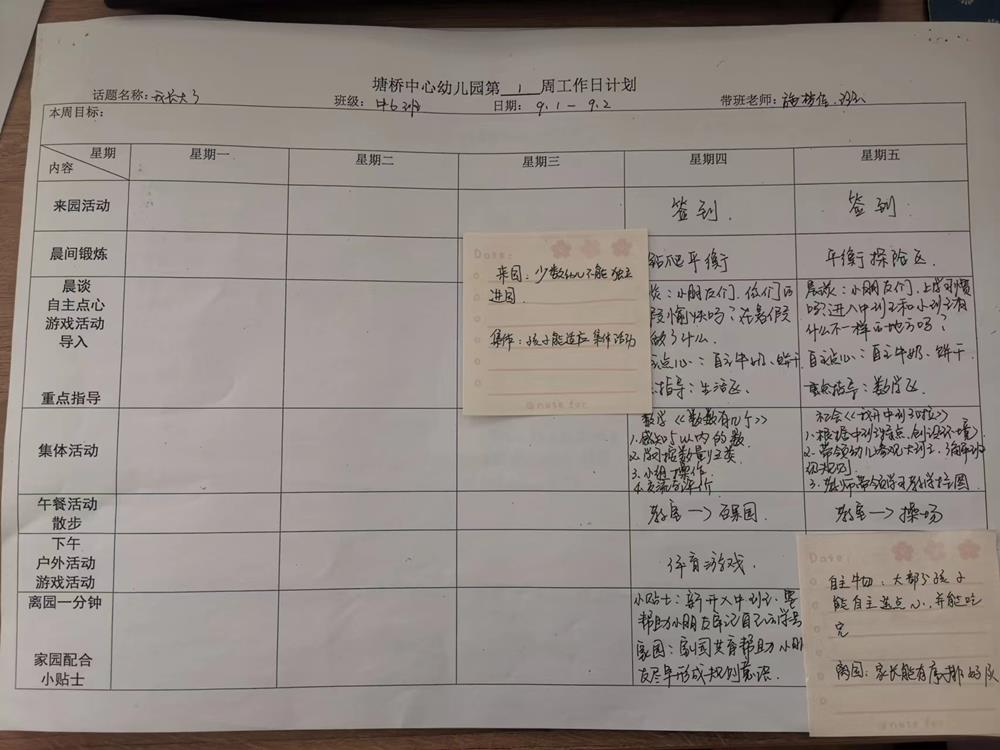 塘桥中心幼儿园第 1 周工作日计划
话题名称：我长大了 班级：中6班 日期：9.1－9.2 带班老师：
本周目标：
星期 内容 星期一 星期二 星期三 星期四 星期五
来园活动 签到. 签到.
晨间锻炼 钻爬平衡 平衡探险区.
晨谈
自主点心
游戏活动
导入
重点指导
谈：小朋友们，你们
假愉快吗？在暑假
做了什么.
点心：自主牛奶、饼干
指导：生活区
晨谈：小朋友们，上学习惯
吗？进入中班和小班有
什么不一样的地方吗？
自主点心：自主牛奶、饼干
重点指导：数学区
集体活动
数学《数数有几个》
1.感知5以内的数
2.
3.小组操作
4.交流与评价
社会《我升中班啦》
1.根据中班特点，创设环境
2.带领幼儿参观大班，
规则.
3.教师带领学习
午餐活动
散步
教室→百果园.
教室→操场
下午
户外活动
游戏活动
体育游戏.
离园一分钟
家园配合
小贴士
小贴士：新升入中班，要
帮助小朋友牢记自己的学号
家园：家园共育帮助小朋
友尽早形成规则意识.
Date:
来园：少数幼儿不能独立
进园.
集体：孩子能适应集体活动
@note for
Date:
自主牛奶，大部分孩子
能自主选点心，并能吃
完
离园：家长能有序排好队
@note for